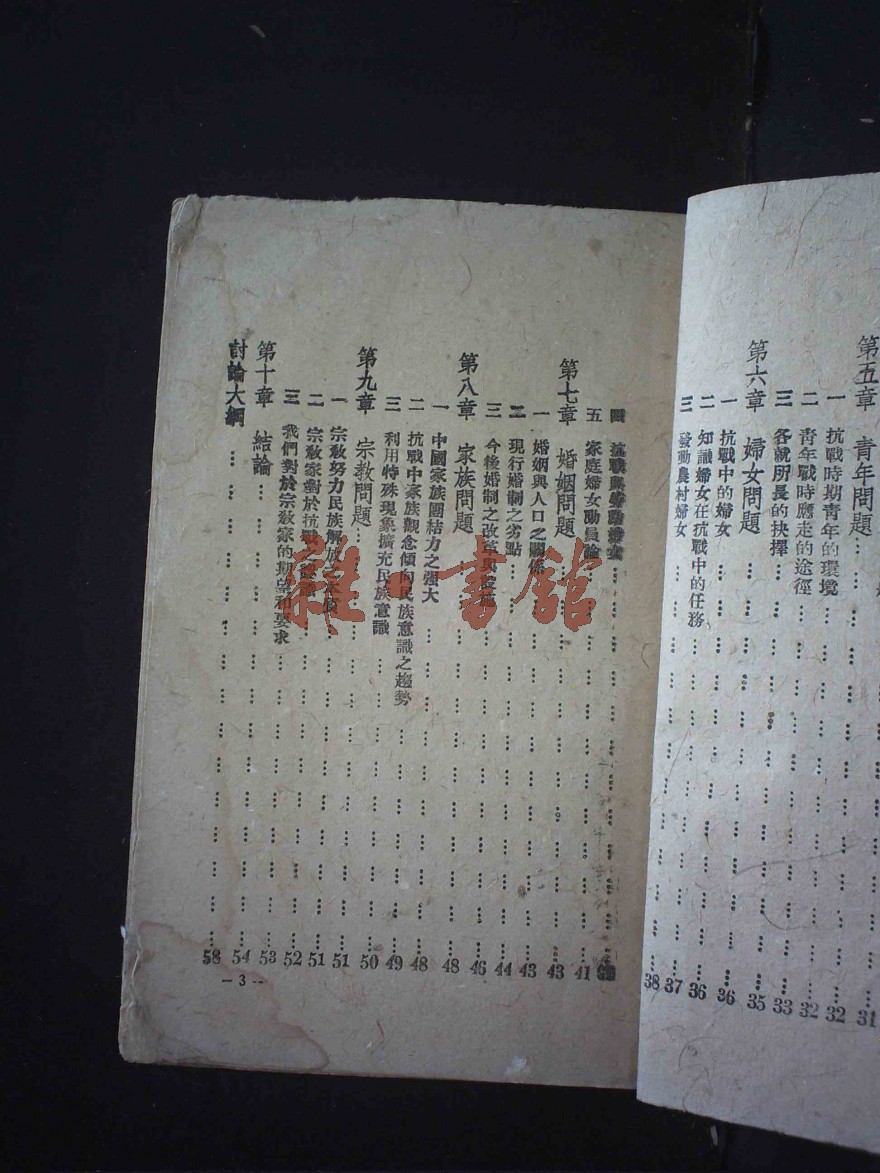 第五章　青年問題……31
一　抗戰時期青年的環境……32
二　青年戰時應走的途徑……32
三　各就所長的抉擇……33
第六章　婦女問題……35
一　抗戰中的婦女……36
二　知識婦女在抗戰中的任務……36
三　發動農村婦女……37
38
四　抗戰與勞動婦女
五　家庭婦女動員論……41
第七章　婚姻問題……43
一　婚姻與人口之關係……43
二　現行婚制之劣點……44
三　今後婚制之改革與
……46
第八章　家族問題……48
一　中國家族團結力之强大……48
二　抗戰中家族觀念傾向民族意識之趨勢……49
三　利用特殊現象擴充民族意識
第九章　宗教問題……50
一　宗敎努力民族解放之
……51
二　宗敎家對於抗戰之
……51
三　我們對於宗敎家的期望和要求……52
第十章　結論……53
討論大綱……54
58
－3－
雜書館